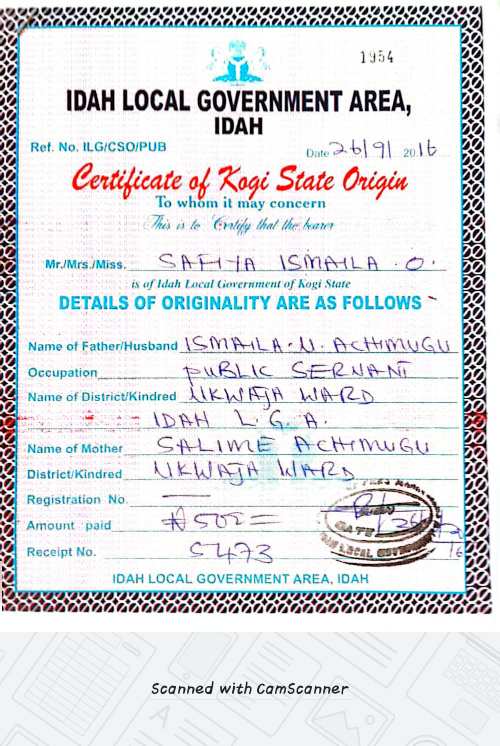 1954
IDAH LOCAL GOVERNMENT AREA,
IDAH
Ref. No. ILG/CSO/PUB
Date 26/9/ 2016
Certificate of Kogi State Origin
To whom it may concern
This is to Certify that the bearer
Mr./Mrs./Miss. SAFIYA ISMAILA . O.
is of Idah Local Government of Kogi State
DETAILS OF ORIGINALITY ARE AS FOLLOWS
Name of Father/Husband ISMAILA . U. ACHIMUGU
Occupation PUBLIC SERVANT
Name of District/Kindred UKWAJA WARD
IDAH L. G. A.
Name of Mother SALIME ACHIMUGU
District/Kindred UKWAJA WARD
Registration No.
Amount paid ₦500=
Receipt No. 5473
DATE
LOCAL GOVERNMENT
IDAH LOCAL GOVERNMENT AREA, IDAH
Scanned with CamScanner